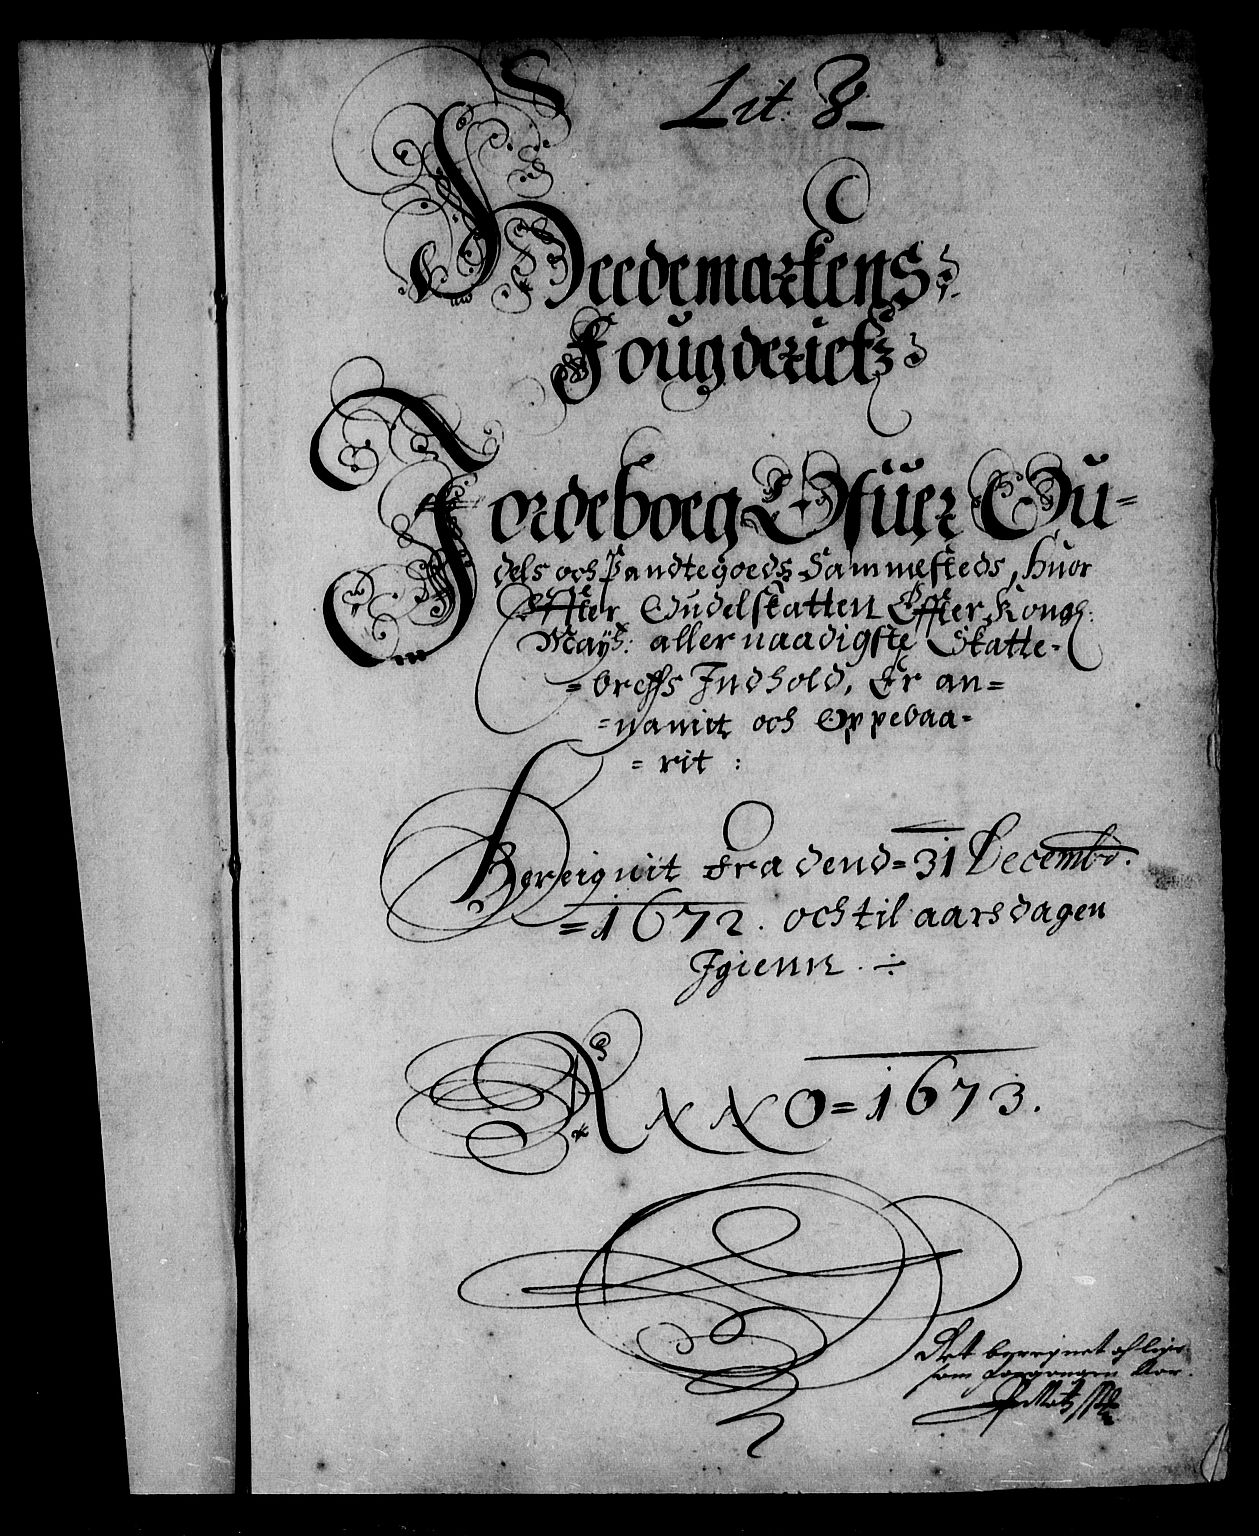 Lit. B
Heedemarkens
Fougderiets
Jordeboeg Ofuer Ou-
dels och Pandtegoeds Sammesteds, huor
Effter Oudelskatten Effter Kongl:
Mayts: allernaadigste Skatte-
=breffs Indhold, Er an=
=namit och Oppebaa-
=rit :
Bereignit fra dend=31 Decembr.
=1672. och til aars dagen
Igienn . ÷
Anno=1673.